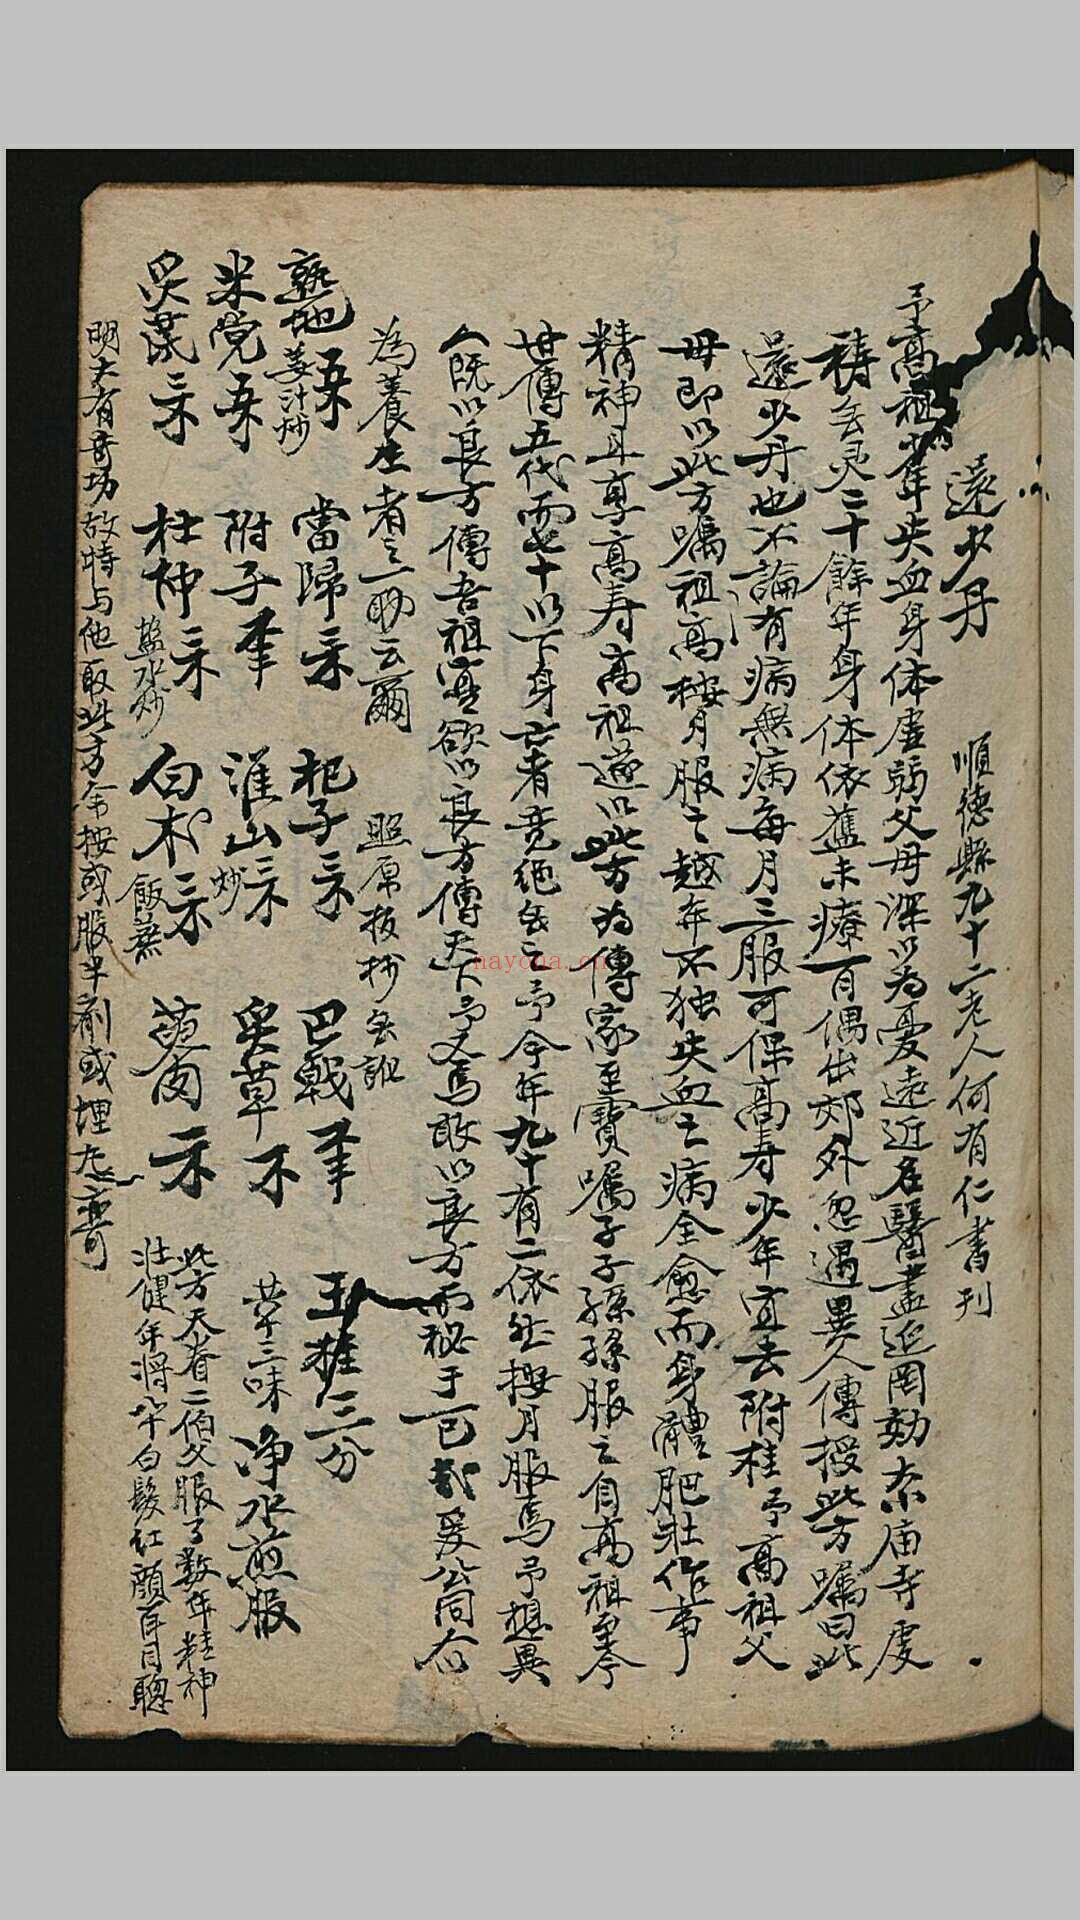 還少丹 順德縣九十二老人何有仁書刊
予高祖少年失血身体虛弱父母深以為憂遠近名醫盡延罔効奈庙寺虔
禱無灵二十餘年身体依舊未療一旦偶出郊外忽遇異人傳授此方嘱曰此
還少丹也不論有病無病每月三服可保高寿少年宜去附桂予高祖父
母即以此方嘱祖高按月服之越年不独失血之病全愈而身體肥壯作事
精神且享高寿高祖遂以此方為傳家至寶嘱子子孫孫服之自高祖至今
世傳五代而七十以下身亡者竟絕無之予今年九十有二依然按月服焉予想異
人既以良方傳吾祖寔欲以良方傳天下予又焉敢以良方而秘于己哉爰公同右
為養生者之一助云爾 照原板抄無訛
熟地 姜汁炒 當歸 杞子 巴戟 玉桂三分
米党 附子 淮山 炒 炙草 草三味 净水煎服
炙茋 杜仲 盐水炒 白术 飯蒸 萸肉
此方天眷二伯父服了数年精神
壮健年將八十白髮红顏耳目聰
明大有奇功故特与他取此方余按或服半剤或埋